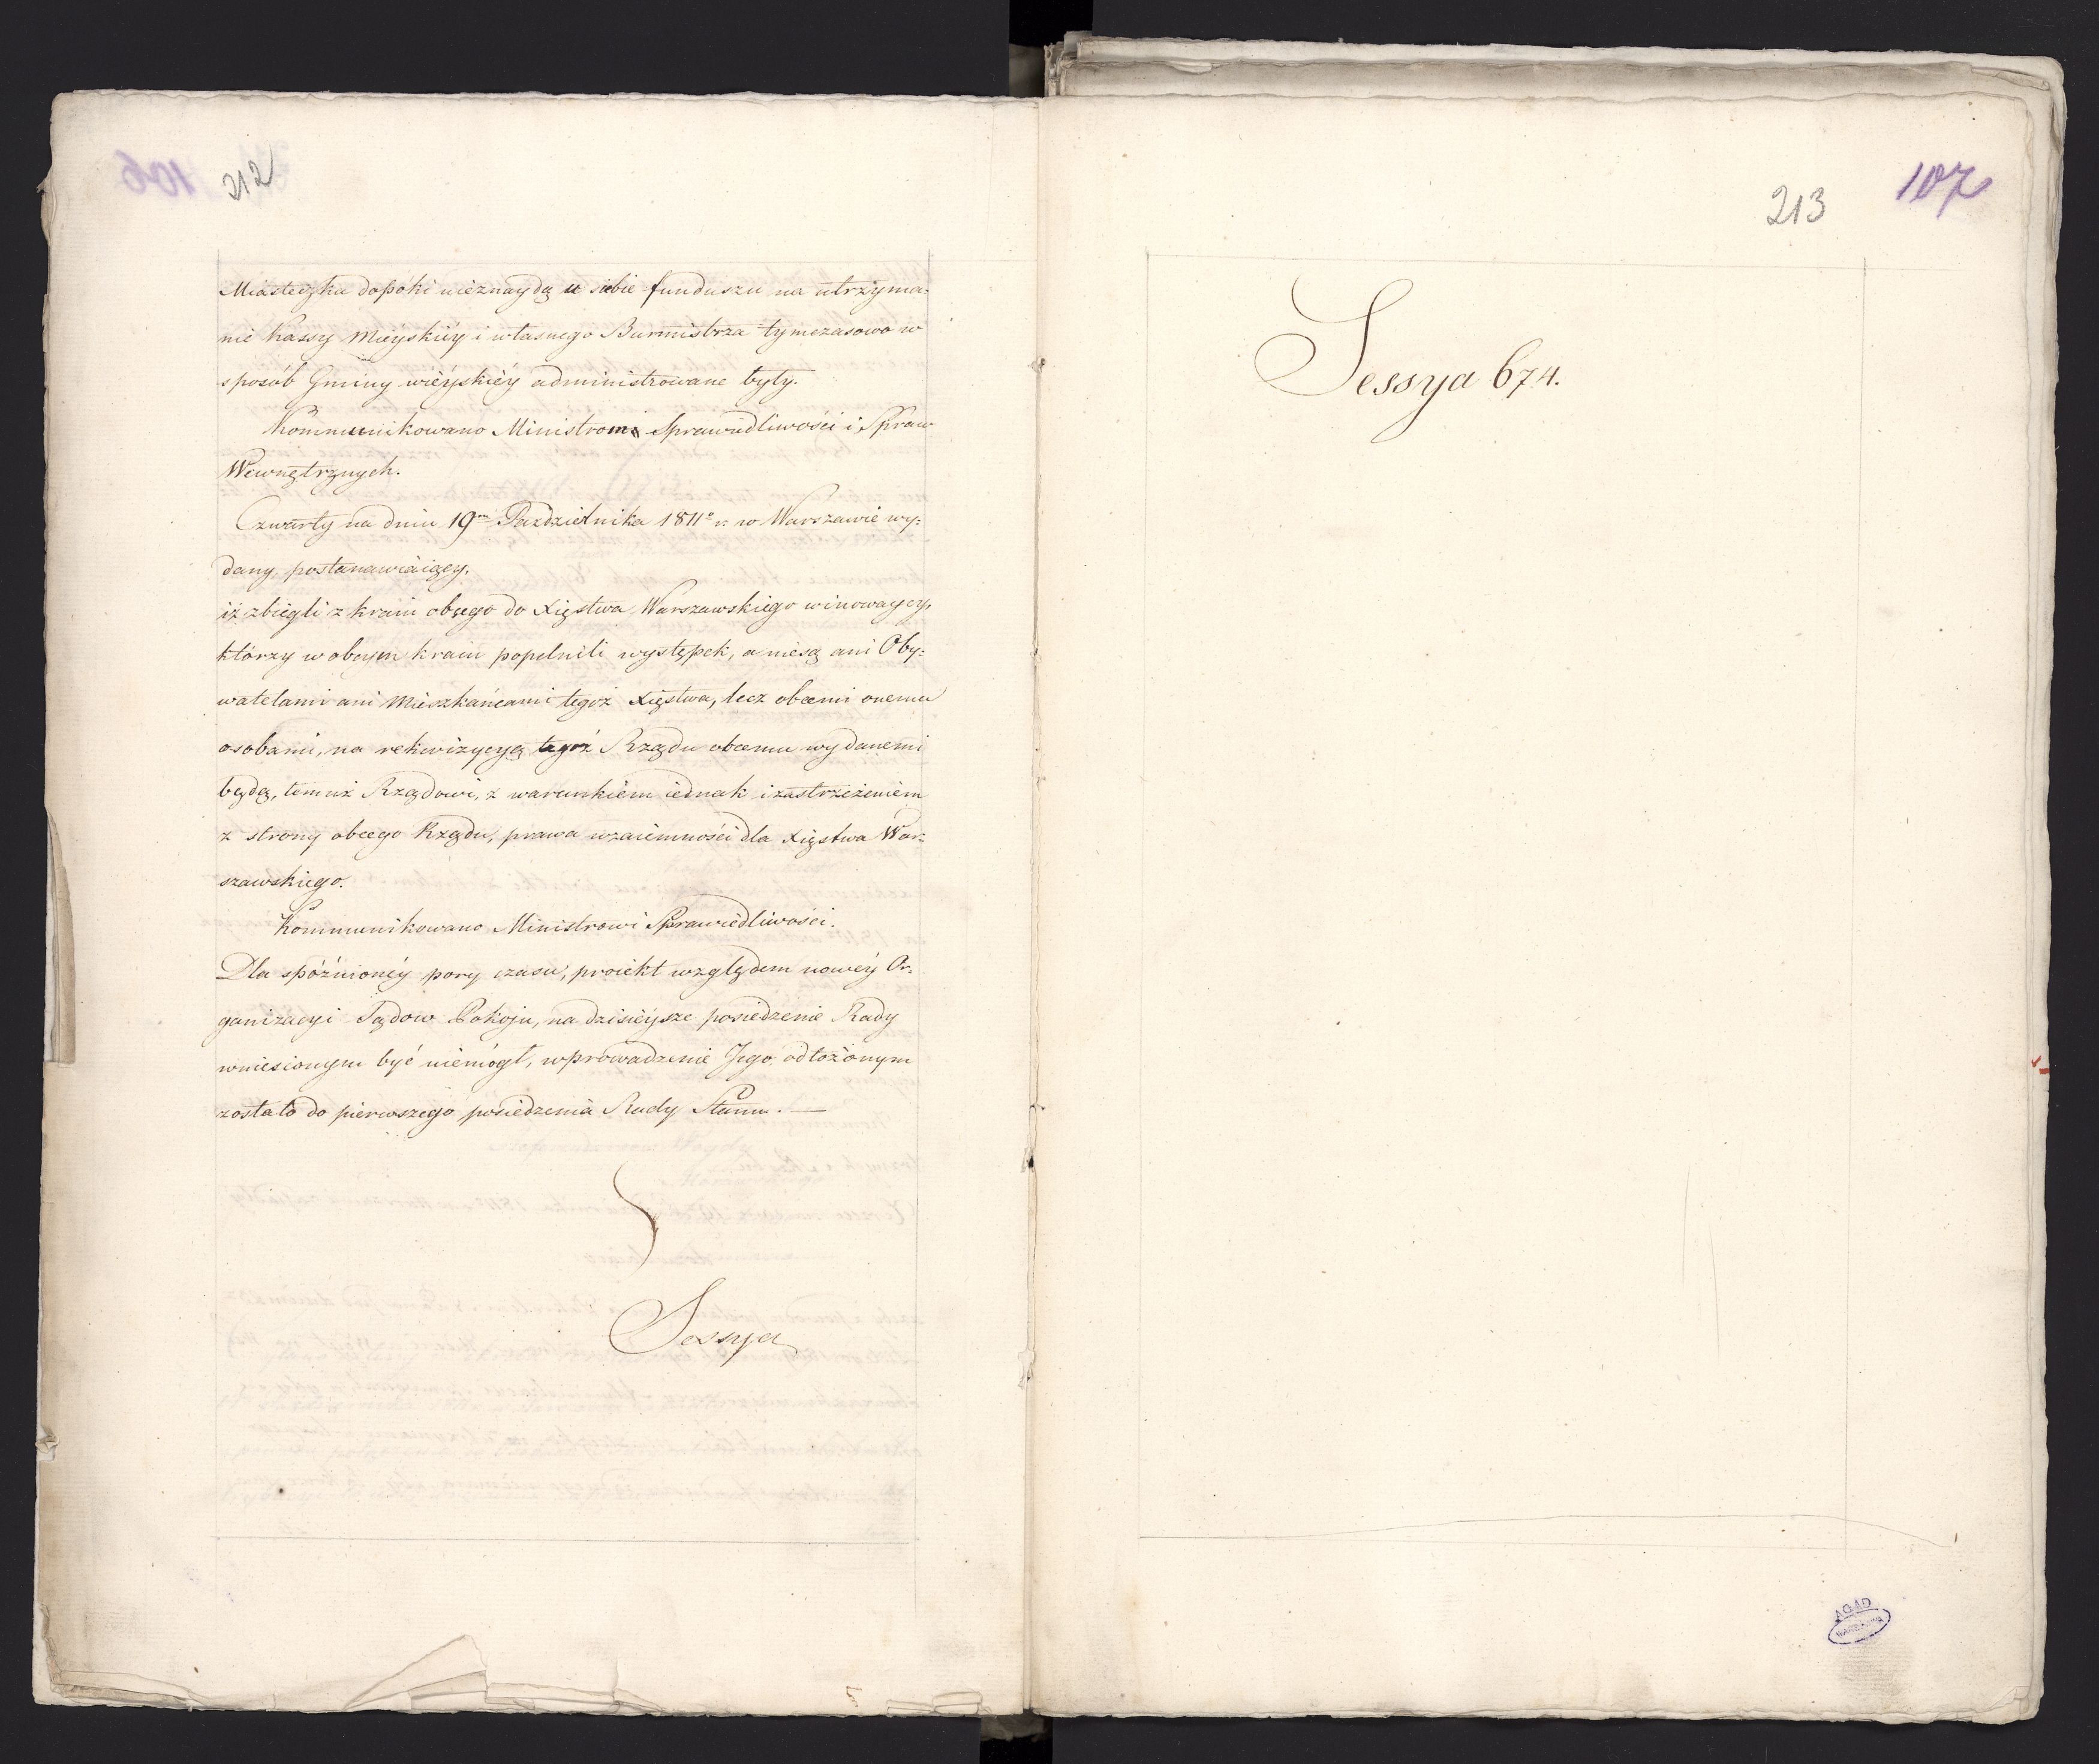 212
Miasteczka dopóki nieznaydą u siebie funduszu na utrzyma:
nie Kassy Mieyskiéy i własnego Burmistrza tymczasowo w
sposób Gminy wiéyskiéy administrowane były.
Kommunikowano Ministrom Sprawiedliwości i Spraw
Wewnętrznych.
Czwarty na dniu 19m Pazdziernika 1811o r. w Warszawie wy:
dany, postanawiaiący,
iż zbiegli z kraiu obcego do Xięstwa Warszawskiego winowaycy,
którzy w obcym kraiu popełnili występek, a niesą ani Oby:
watelami ani Mieszkańcami tegoż Xięstwa, lecz obcemi onemu
osobami, na rekwizycyą tegoż Rządu obcemu wydanemi
będą, temuż Rządowi, z warunkiem iednak i zastrzeżeniem
z strony obcego Rządu, prawa wzaiemności dla Xięstwa War:
szawskiego.
Kommunikowano Ministrowi Sprawiedliwości.
Dla spóźnionéy pory czasu, proiekt względem nowéy Or:
ganizacyi Sądow Pokoju, na dzisieysze posiedzenie Rady
wniesionym być niemógł, wprowadzenie Jego odłożonym
zostało do pierwszego posiedzenia Rady Stanu. —
Sessya
213
107
Sessya 674.
AGAD
WARSZAWA